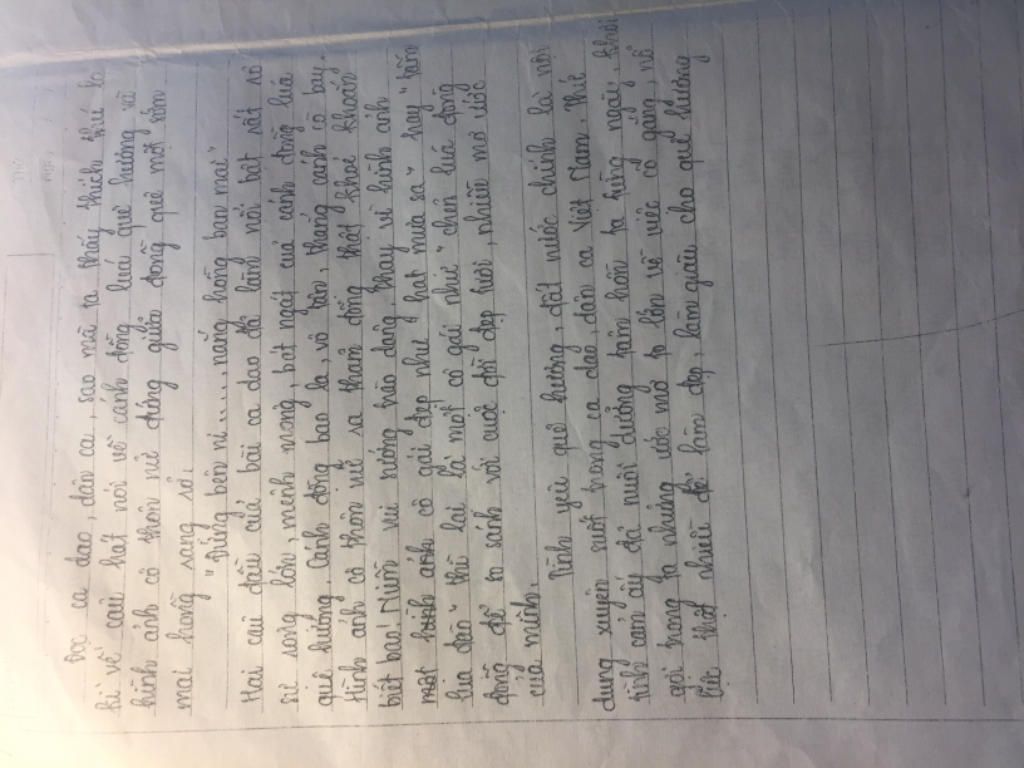 Đọc ca dao, dân ca, sao mà ta thấy thích thú ta
kì về câu hát nói về cánh đồng lúa quê hương và
hình ảnh cô thôn nữ đứng giữa đồng quê một sớm
mai hồng rạng rỡ.
"Đứng bên ni..... nắng hồng ban mai"
Hai câu đầu của bài ca dao đã làm nổi bật sắt sỡ
sự rộng lớn, mênh mong, bát ngát của cánh đồng lúa
quê hương. Cánh đồng bao la, vô tận, thẳng cánh cò bay.
Hình ảnh cô thôn nữ sa thăm đồng thật khoẻ khoắn
biết bao! Niềm vui sướng trào dâng thay vì hình ảnh
một cô gái đẹp như "hạt mưa sa" hay "tấm
lụa đào" thì lại là một cô gái như "chẽn lúa đòng
đòng" để so sánh với cuộc đời đẹp tươi, nhiều mơ ước
của mình.
Tình yêu quê hương, đất nước chính là nội
dung xuyên suốt trong ca dao, dân ca Việt Nam. Thứ
tình cảm ấy đã nuôi dưỡng tâm hồn ta từng ngày, khơi
gợi trong ta những ước mơ to lớn về việc cố gắng, nỗ
lực thật nhiều để làm đẹp, làm giàu cho quê hương